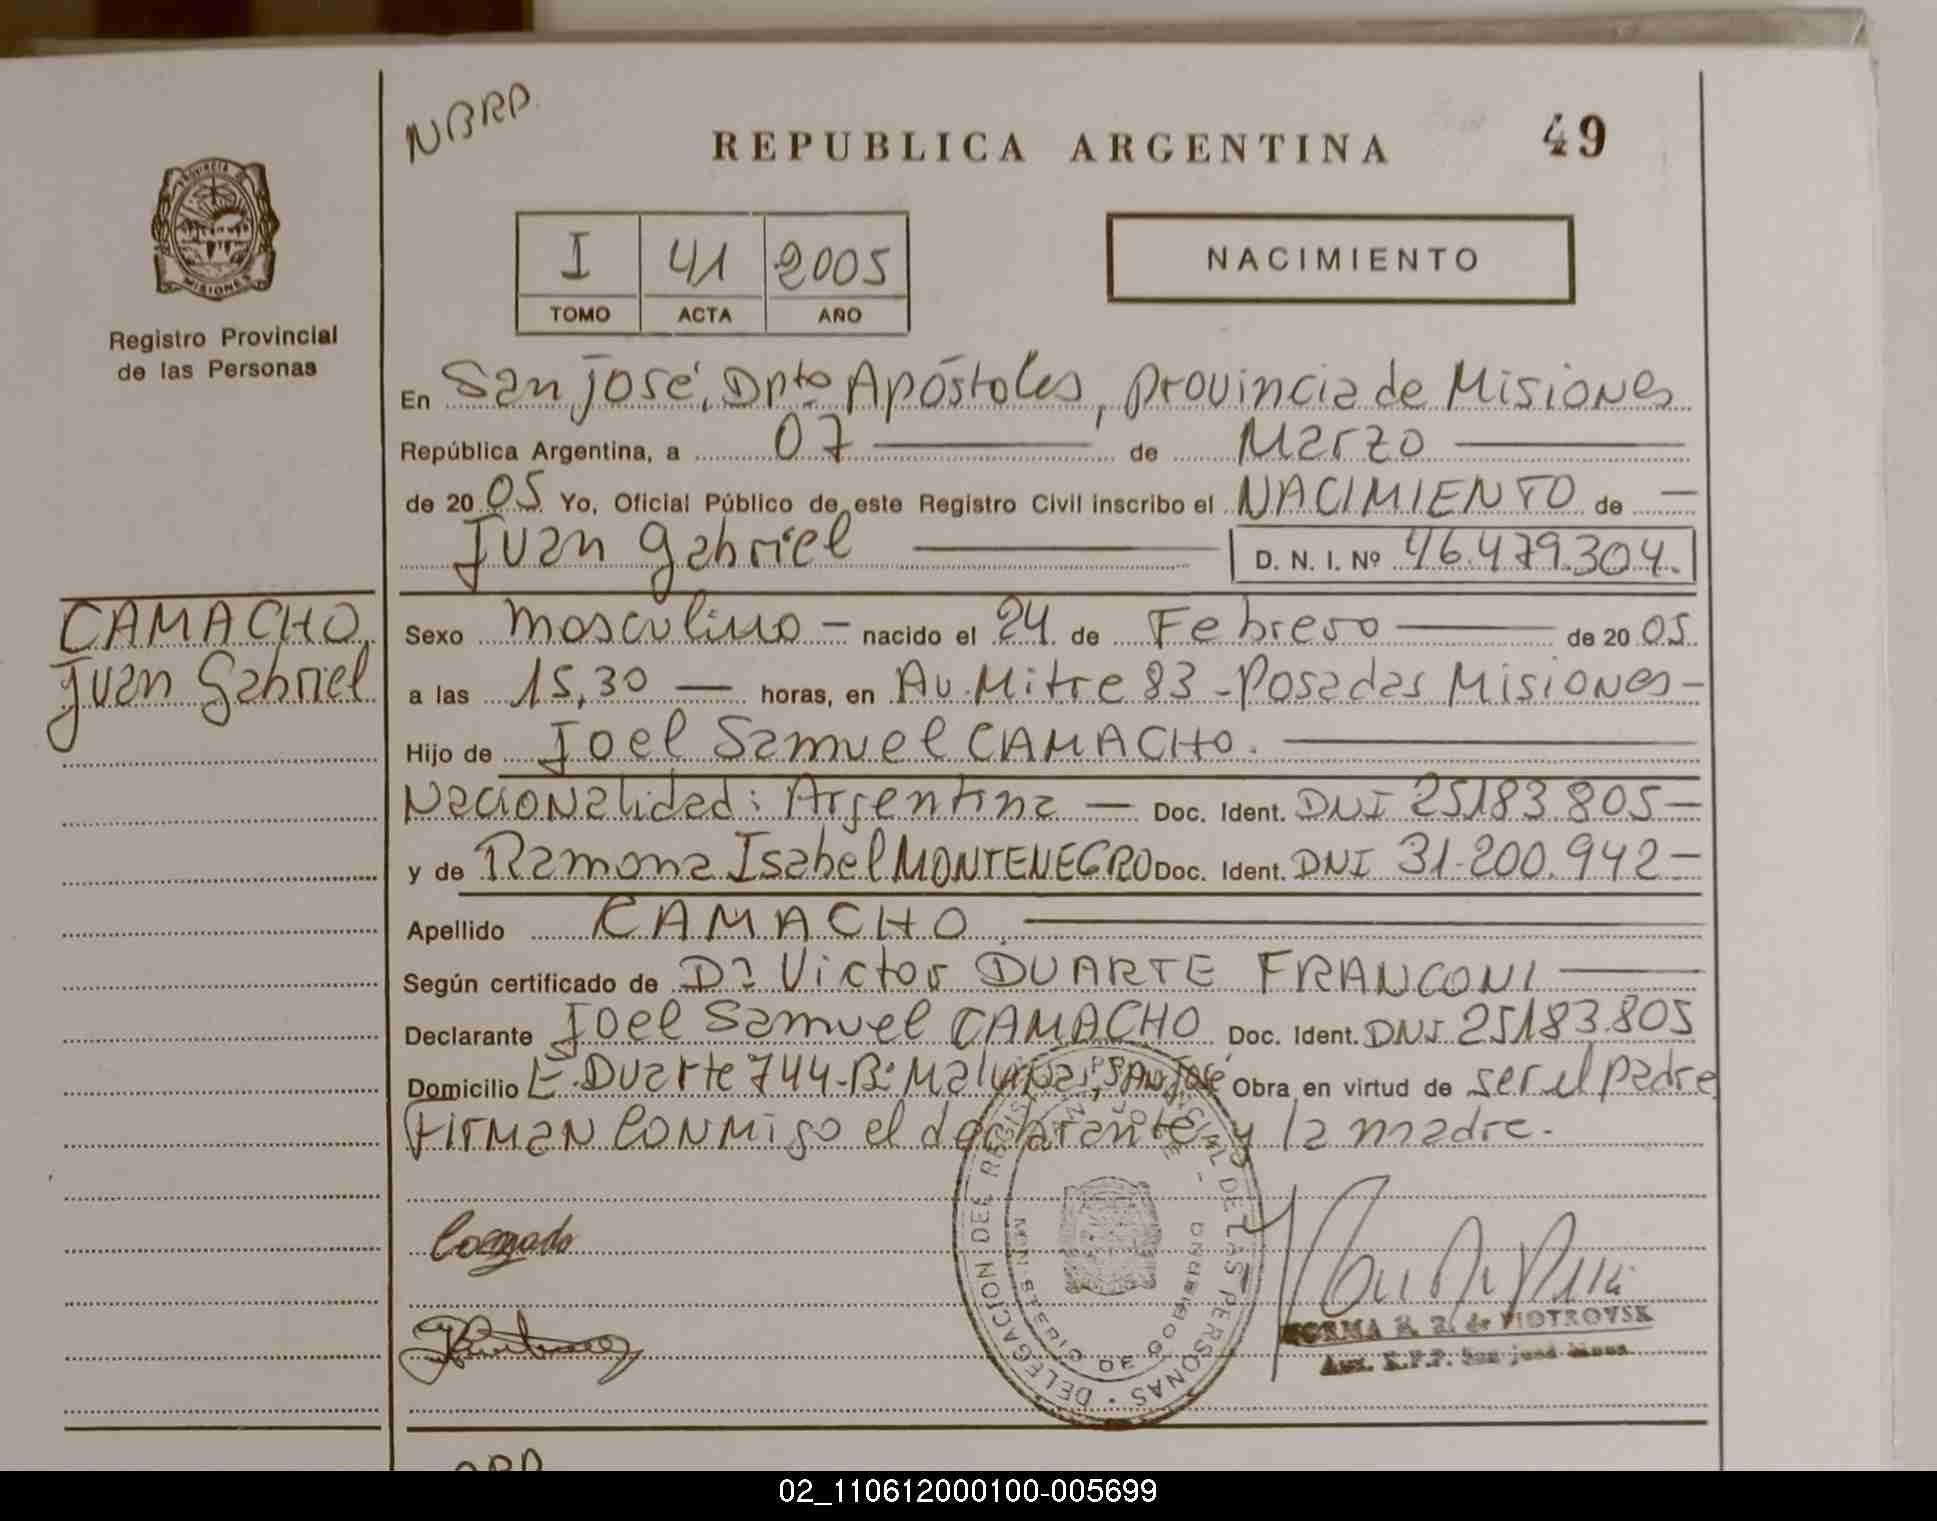 NBRP.
REPUBLICA ARGENTINA
49
PROVINCIA DE
MISIONES
Registro Provincial
de las Personas
I 41 2005
TOMO ACTA AÑO
NACIMIENTO
En San José, Dpto Apóstoles, Provincia de Misiones
República Argentina, a 07 de Marzo
de 2005 Yo, Oficial Público de este Registro Civil inscribo el NACIMIENTO de
Juan Gabriel D. N. I. Nº 46.479.304.
CAMACHO
Juan Gabriel
Sexo masculino nacido el 24 de Febrero de 2005
a las 15,30 horas, en Av. Mitre 83 - Posadas Misiones -
Hijo de Joel Samuel CAMACHO.
Nacionalidad: Argentina — Doc. Ident. DNI 25183.805 —
y de Ramona Isabel MONTENEGRO Doc. Ident. DNI 31.200.942 —
Apellido CAMACHO
Según certificado de Dr Victor DUARTE FRANCONI
Declarante Joel Samuel CAMACHO Doc. Ident. DNI 25183.805
Domicilio E. Duarte 744-Bº Malvinas, SAN José Obra en virtud de ser el padre
Firman conmigo el declarante y la madre.
DELEGACION DEL REGISTRO PROVINCIAL DE LAS PERSONAS
SAN JOSE
NORMA R. R. de PIOTROVSK
Aux. R.P.P. San José Mnes
02_110612000100-005699